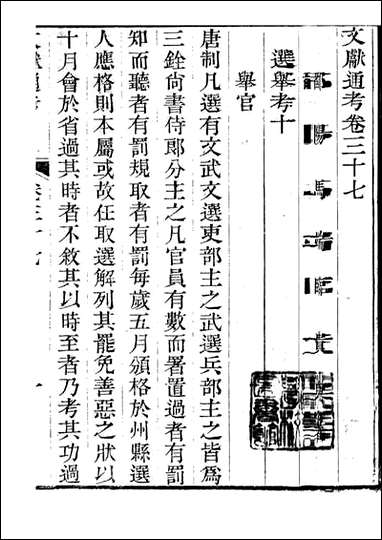 文獻通考卷三十七
鄱陽馬端臨
選舉考十
舉官
唐制凡選有文武文選吏部主之武選兵部主之皆爲
三銓尙書侍郞分主之凡官員有數而署置過者有罰
知而聽者有罰規取者有罰每歲五月頒格於州縣選
人應格則本屬或故任取選解列其罷免善惡之狀以
十月會於省過其時者不敘其以時至者乃考其功過